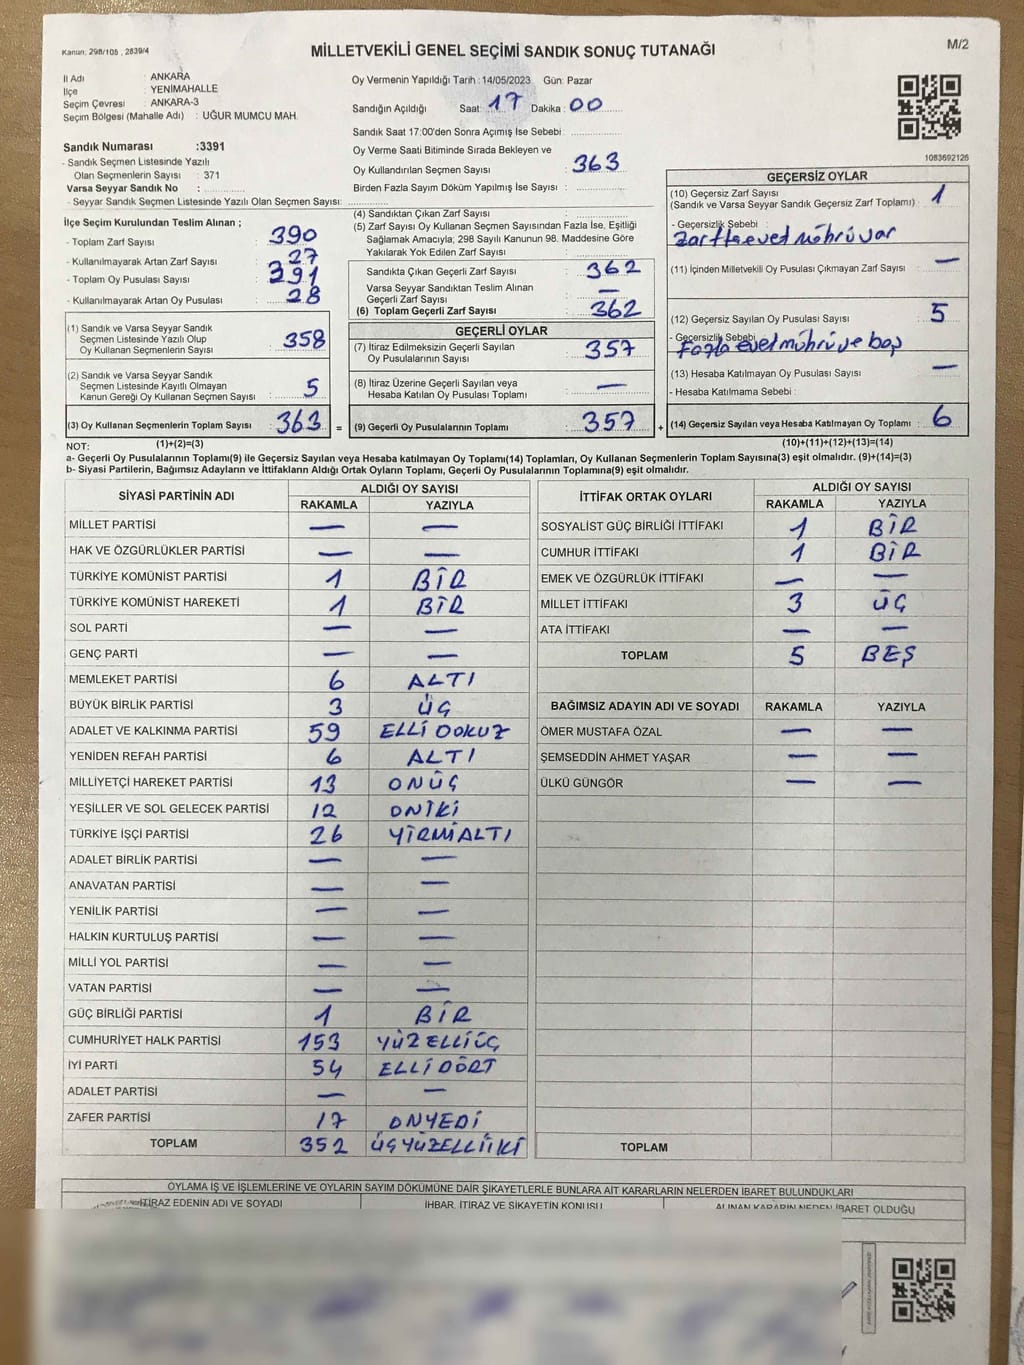 Kanun: 298/105 , 2839/4
MİLLETVEKİLİ GENEL SEÇİMİ SANDIK SONUÇ TUTANAĞI
M/2
İl Adı : ANKARA
İlçe : YENİMAHALLE
Seçim Çevresi : ANKARA-3
Seçim Bölgesi (Mahalle Adı) : UĞUR MUMCU MAH.
Oy Vermenin Yapıldığı Tarih : 14/05/2023 Gün: Pazar
Sandığın Açıldığı Saat: 17 Dakika: 00
Sandık Saat 17:00'den Sonra Açımış İse Sebebi:
Sandık Numarası :3391
- Sandık Seçmen Listesinde Yazılı
Olan Seçmenlerin Sayısı : 371
Varsa Seyyar Sandık No :
- Seyyar Sandık Seçmen Listesinde Yazılı Olan Seçmen Sayısı:
Oy Verme Saati Bitiminde Sırada Bekleyen ve
Oy Kullandırılan Seçmen Sayısı : 363
Birden Fazla Sayım Döküm Yapılmış İse Sayısı :
1083692126
İlçe Seçim Kurulundan Teslim Alınan ;
- Toplam Zarf Sayısı : 390
- Kullanılmayarak Artan Zarf Sayısı : 27
- Toplam Oy Pusulası Sayısı : 391
- Kullanılmayarak Artan Oy Pusulası : 28
(1) Sandık ve Varsa Seyyar Sandık
Seçmen Listesinde Yazılı Olup
Oy Kullanan Seçmenlerin Sayısı : 358
(2) Sandık ve Varsa Seyyar Sandık
Seçmen Listesinde Kayıtlı Olmayan
Kanun Gereği Oy Kullanan Seçmen Sayısı : 5
(3) Oy Kullanan Seçmenlerin Toplam Sayısı : 363 =
(4) Sandıktan Çıkan Zarf Sayısı :
(5) Zarf Sayısı Oy Kullanan Seçmen Sayısından Fazla İse, Eşitliği
Sağlamak Amacıyla; 298 Sayılı Kanunun 98. Maddesine Göre
Yakılarak Yok Edilen Zarf Sayısı :
Sandıkta Çıkan Geçerli Zarf Sayısı : 362
Varsa Seyyar Sandıktan Teslim Alınan
Geçerli Zarf Sayısı : —
(6) Toplam Geçerli Zarf Sayısı : 362
GEÇERLİ OYLAR
(7) İtiraz Edilmeksizin Geçerli Sayılan
Oy Pusulalarının Sayısı : 357
(8) İtiraz Üzerine Geçerli Sayılan veya
Hesaba Katılan Oy Pusulası Toplamı : —
(9) Geçerli Oy Pusulalarının Toplamı : 357 +
GEÇERSİZ OYLAR
(10) Geçersiz Zarf Sayısı : 1
(Sandık ve Varsa Seyyar Sandık Geçersiz Zarf Toplamı)
- Geçersizlik Sebebi :
Zarfta evet mührü var
(11) İçinden Milletvekili Oy Pusulası Çıkmayan Zarf Sayısı : —
(12) Geçersiz Sayılan Oy Pusulası Sayısı : 5
- Geçersizlik Sebebi
Fazla evet mührü ve boş
(13) Hesaba Katılmayan Oy Pusulası Sayısı : —
- Hesaba Katılmama Sebebi :
(14) Geçersiz Sayılan veya Hesaba Katılmayan Oy Toplamı : 6
NOT: (1)+(2)=(3) (10)+(11)+(12)+(13)=(14)
a- Geçerli Oy Pusulalarının Toplamı(9) ile Geçersiz Sayılan veya Hesaba katılmayan Oy Toplamı(14) Toplamları, Oy Kullanan Seçmenlerin Toplam Sayısına(3) eşit olmalıdır. (9)+(14)=(3)
b- Siyasi Partilerin, Bağımsız Adayların ve İttifakların Aldığı Ortak Oyların Toplamı, Geçerli Oy Pusulalarının Toplamına(9) eşit olmalıdır.
SİYASİ PARTİNİN ADI ALDIĞI OY SAYISI
RAKAMLA YAZIYLA
MİLLET PARTİSİ — —
HAK VE ÖZGÜRLÜKLER PARTİSİ — —
TÜRKİYE KOMÜNİST PARTİSİ 1 BİR
TÜRKİYE KOMÜNİST HAREKETİ 1 BİR
SOL PARTİ — —
GENÇ PARTİ — —
MEMLEKET PARTİSİ 6 ALTI
BÜYÜK BİRLİK PARTİSİ 3 ÜÇ
ADALET VE KALKINMA PARTİSİ 59 ELLİ DOKUZ
YENİDEN REFAH PARTİSİ 6 ALTI
MİLLİYETÇİ HAREKET PARTİSİ 13 ONÜÇ
YEŞİLLER VE SOL GELECEK PARTİSİ 12 ONİKİ
TÜRKİYE İŞÇİ PARTİSİ 26 YİRMİALTI
ADALET BİRLİK PARTİSİ — —
ANAVATAN PARTİSİ — —
YENİLİK PARTİSİ — —
HALKIN KURTULUŞ PARTİSİ — —
MİLLİ YOL PARTİSİ — —
VATAN PARTİSİ — —
GÜÇ BİRLİĞİ PARTİSİ 1 BİR
CUMHURİYET HALK PARTİSİ 153 YÜZELLİÜÇ
İYİ PARTİ 54 ELLİDÖRT
ADALET PARTİSİ — —
ZAFER PARTİSİ 17 ONYEDİ
TOPLAM 352 ÜÇYÜZELLİİKİ
İTTİFAK ORTAK OYLARI ALDIĞI OY SAYISI
RAKAMLA YAZIYLA
SOSYALİST GÜÇ BİRLİĞİ İTTİFAKI 1 BİR
CUMHUR İTTİFAKI 1 BİR
EMEK VE ÖZGÜRLÜK İTTİFAKI — —
MİLLET İTTİFAKI 3 ÜÇ
ATA İTTİFAKI — —
TOPLAM 5 BEŞ
BAĞIMSIZ ADAYIN ADI VE SOYADI RAKAMLA YAZIYLA
ÖMER MUSTAFA ÖZAL — —
ŞEMSEDDİN AHMET YAŞAR — —
ÜLKÜ GÜNGÖR — —
TOPLAM
OYLAMA İŞ VE İŞLEMLERİNE VE OYLARIN SAYIM DÖKÜMÜNE DAİR ŞİKAYETLERLE BUNLARA AİT KARARLARIN NELERDEN İBARET BULUNDUKLARI
İTİRAZ EDENİN ADI VE SOYADI İHBAR, İTİRAZ VE ŞİKAYETİN KONUSU ALINAN KARARIN NEDEN İBARET OLDUĞU